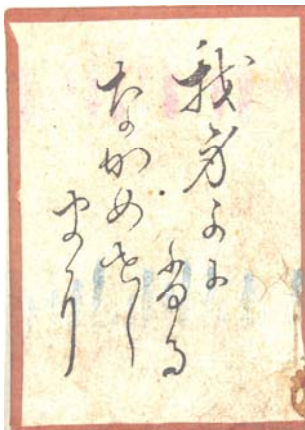 我身よに
ふる
なかめせし
まに